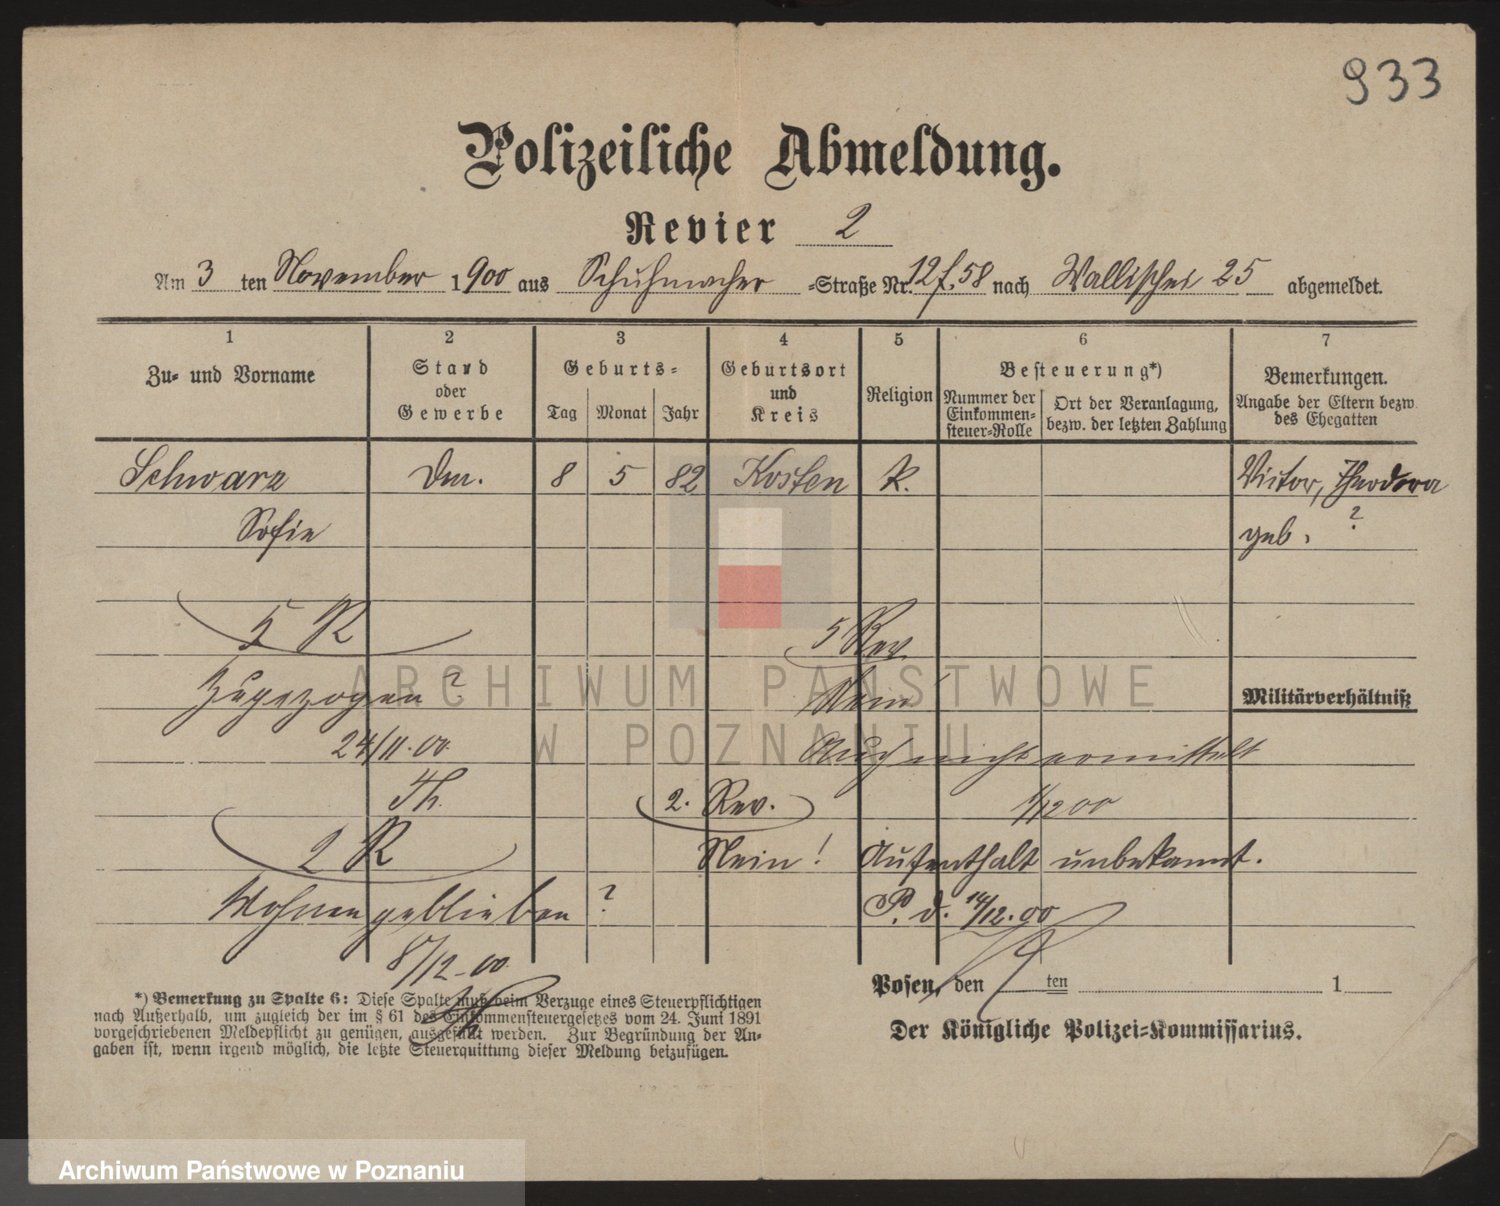 933
Polizeiliche Abmeldung.
Revier 2
Am 3 ten November 1900 aus Schuhmacher =Straße Nr. 12 f. 58 nach Wallischei 25 abgemeldet.
1 2 3 4 5 6 7
Zu- und Vorname
Stand
oder
Gewerbe
Geburts=
Tag Monat Jahr
Geburtsort
und
Kreis
Religion
Besteuerung*)
Nummer der
Einkommen=
steuer=Rolle
Ort der Veranlagung,
bezw. der letzten Zahlung
Bemerkungen.
Angabe der Eltern bezw.
des Ehegatten
Schwarz 8 5 82 Kosten K. Victor, Theodora
Sofie geb. ?
5 R 5 Rev.
Zugezogen ? Nein
Militärverhältniß
24/11.00. Auch nicht ermittelt
Th. 2. Rev. 1/12 00
2 R Nein! Aufenthalt unbekannt.
Wohnen geblieben ? P. d. 14/12.00
8/12.00
Posen, den ten 1
Der Königliche Polizei=Kommissarius.
*) Bemerkung zu Spalte 6: Diese Spalte muß beim Verzuge eines Steuerpflichtigen
nach Außerhalb, um zugleich der im § 61 des Einkommensteuergesetzes vom 24. Juni 1891
vorgeschriebenen Meldepflicht zu genügen, ausgefüllt werden. Zur Begründung der An=
gaben ist, wenn irgend möglich, die letzte Steuerquittung dieser Meldung beizufügen.
ARCHIWUM PAŃSTWOWE
W POZNANIU
Archiwum Państwowe w Poznaniu